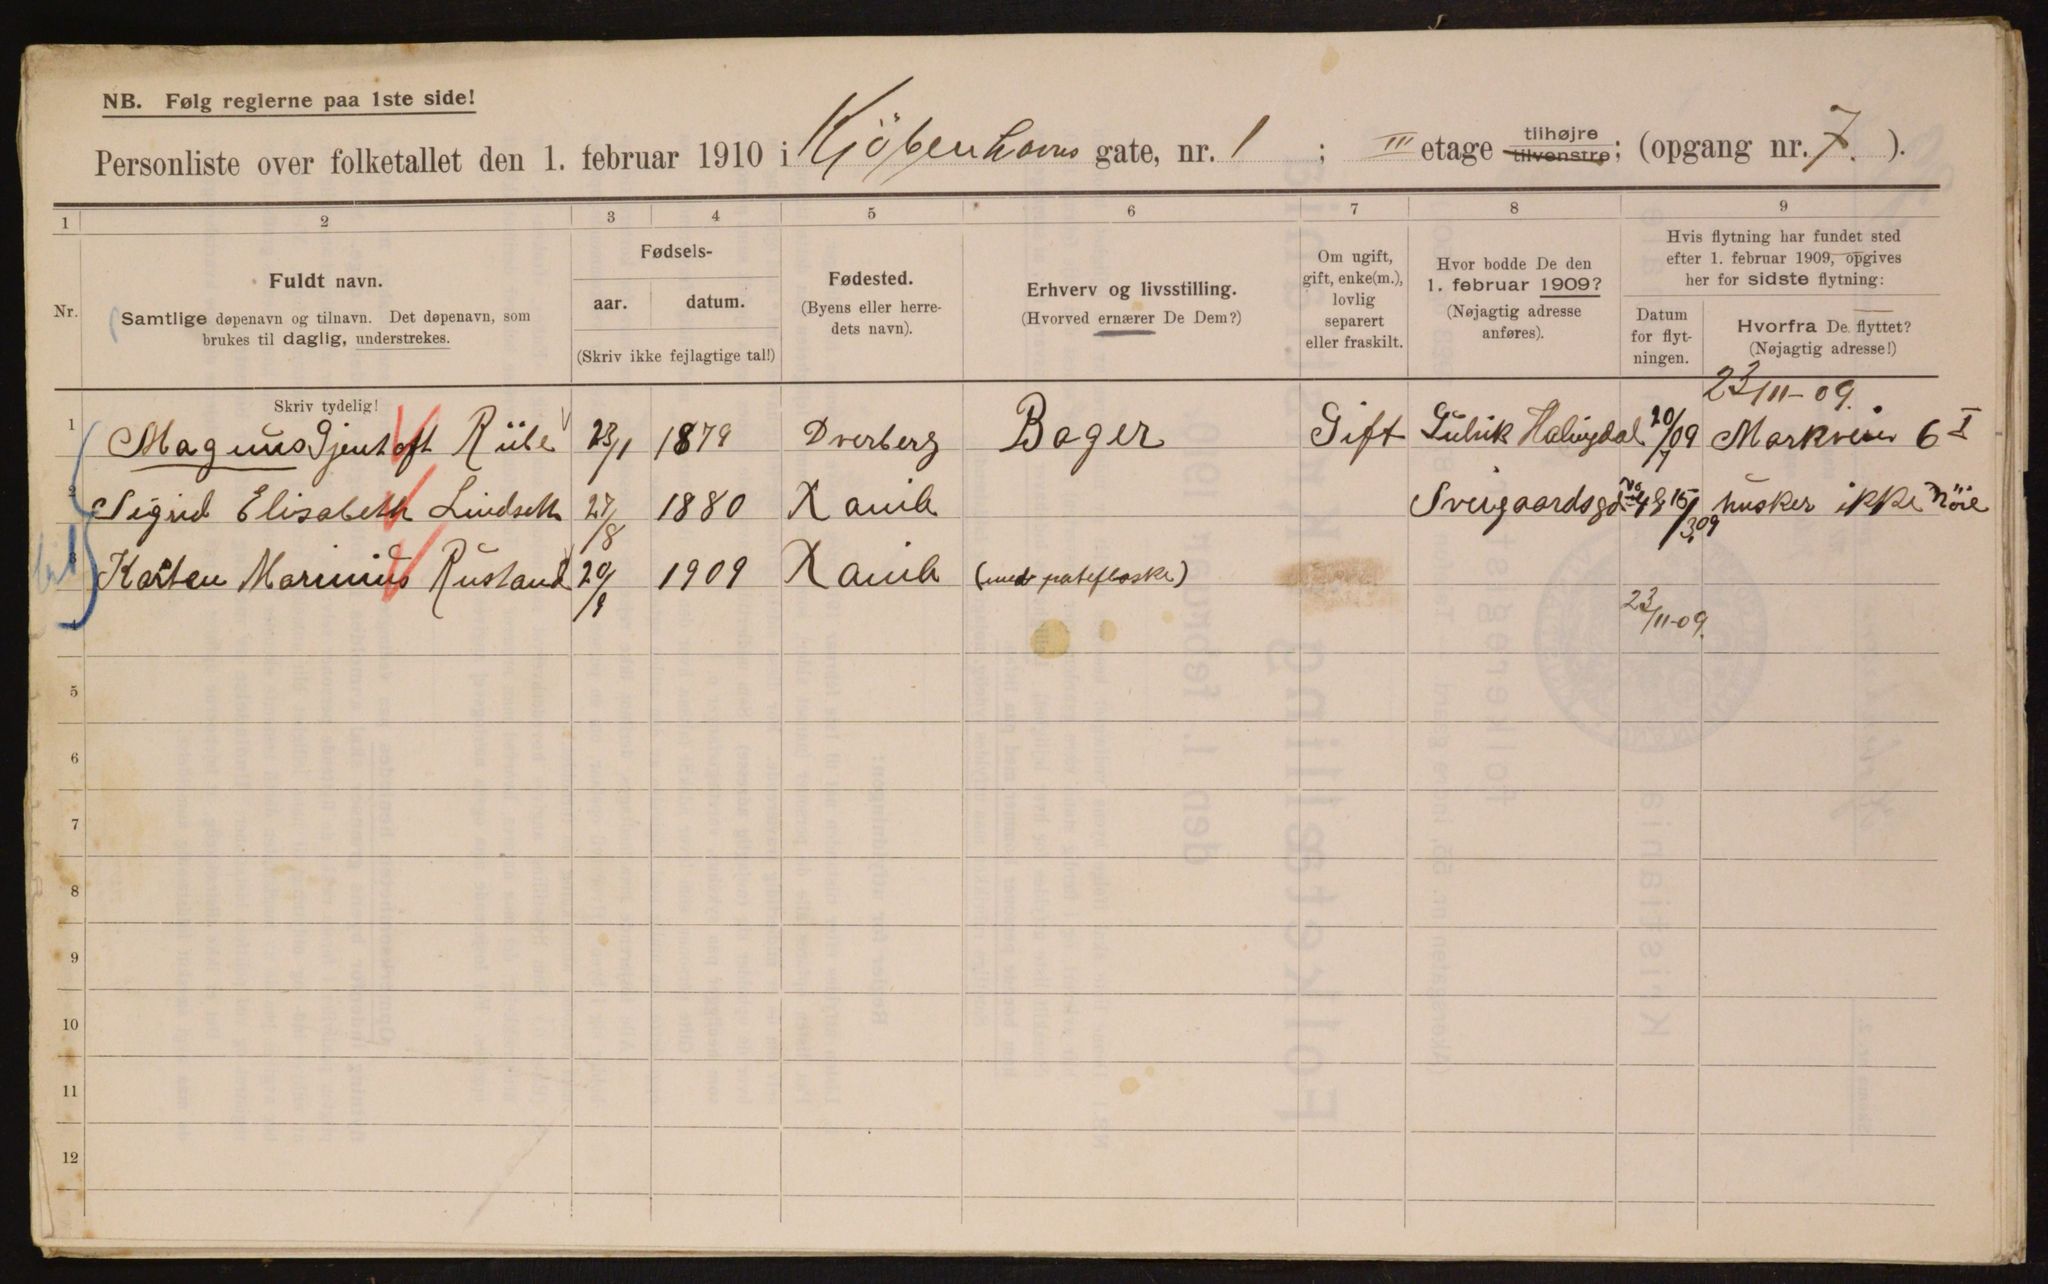 NB. Følg reglerne paa 1ste side!
Personliste over folketallet den 1. februar 1910 i Kjöbenhavns gate, nr. 1 ; III etage tilhøjre tilvenstre; (opgang nr. 7. ).
1 2 3 4 5 6 7 8 9
Nr.
Fuldt navn.
Samtlige døpenavn og tilnavn. Det døpenavn, som
brukes til daglig, understrekes.
Skriv tydelig!
Fødsels-
aar. datum.
(Skriv ikke fejlagtige tal!)
Fødested.
(Byens eller herre-
dets navn).
Erhverv og livsstilling.
(Hvorved ernærer De Dem?)
Om ugift,
gift, enke(m.),
lovlig
separert
eller fraskilt.
Hvor bodde De den
1. februar 1909?
(Nøjagtig adresse
anføres).
Hvis flytning har fundet sted
efter 1. februar 1909, opgives
her for sidste flytning:
Datum
for flyt-
ningen.
Hvorfra De flyttet?
(Nøjagtig adresse!)
23/11-09.
1 Magnus Gjentoft Riibe 23/1 1879 Dverberg Bager Gift Gulvik Halingdal 20/7 09 Markvein 6 I
2 Sigrid Elisabeth Lindseth 27/8 1880 Xania Sveigaardsgd No 48 15/3 09 husker ikke nöie
3 Karsten Marinius Rustand 20/9 1909 Xania (med pateflaske)
23/11-09.
4
5
6
7
8
9
10
11
12